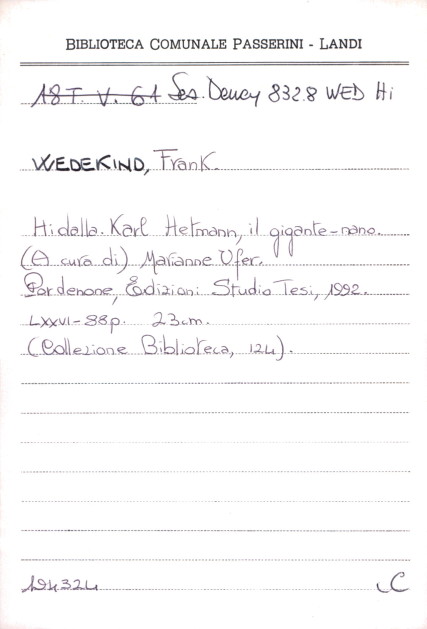 BIBLIOTECA COMUNALE PASSERINI - LANDI
18T. V. 61 Ses. Dewey 832.8 WED Hi
WEDEKIND, Frank.
Hidalla. Karl Hetmann, il gigante-nano.
(A cura di) Marianne Ufer.
Pordenone, Edizioni Studio Tesi, 1992.
LXXVI-88p. 23cm.
(Collezione Biblioteca, 124).
194324 C